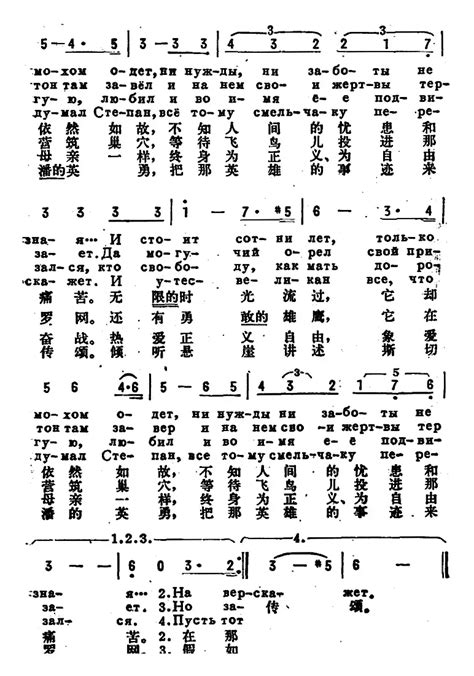 5-4· 5 | 3-3 3 | 4 3 2 | 2 1 7 |
3 3
мохом о-дет,ни нуж-ды, ни за-бо-ты не
тон там за-вёл и на нем сво-и жерт-вы тер-
гу-ю, лю-бил и во и-мя е-е под-ви-
ду-мал Сте-пан,всё то-му смель-ча-ку пе-ре-
依然如故,不知人间的忧患和
营筑巢穴,等待飞鸟儿投进那
母亲一样,终身为正义、为自由
潘的英勇,把那英雄的事迹来
3 3 3 3 | 1 - 7· #5 | 6 - 3· 4 |
зна-я… И сто-ит сот-ни лет, толь-ко
за-ет.Да мо-гу-чий о-рел свой при-
зал-ся, кто сво-бо-ду, как мать до-ро-
ска-жет. И у-тес-ве-ли-кан все, что
痛苦。无限的时光流过,它却
罗网。还有勇敢的雄鹰,它在
奋战。热爱正义自由,象爱
传颂。倾听悬崖讲述斯切
5 6 4·6 | 5 - 6 5 | 4 3 2 | 1 7 6 |
3 5
мо-хом о-дет, ни нуж-ды ни за-бо-ты не
тон там за-вер и на нем сво-и жерт-вы тер
гу-ю, лю-бил и во и-мя е-е под-ви-
ду-мал Сте-пан, все то-му смель-ча-ку пе-ре-
依然如故,不知人间的忧患和
营筑巢穴,等待飞鸟儿投进那
母亲一样,终身为正义、为自由
潘的英勇,把那英雄的事迹来
1.2.3. 4.
3 - - | 6 0 3· 2 :| 3 - #5 | 6 - |
зна- я… 2.На вер-ска- жет.
за- ет. 3.Но за- 传 颂。
зал- ся. 4.Пусть тот
痛 苦。2.在那
罗 网。3.假如